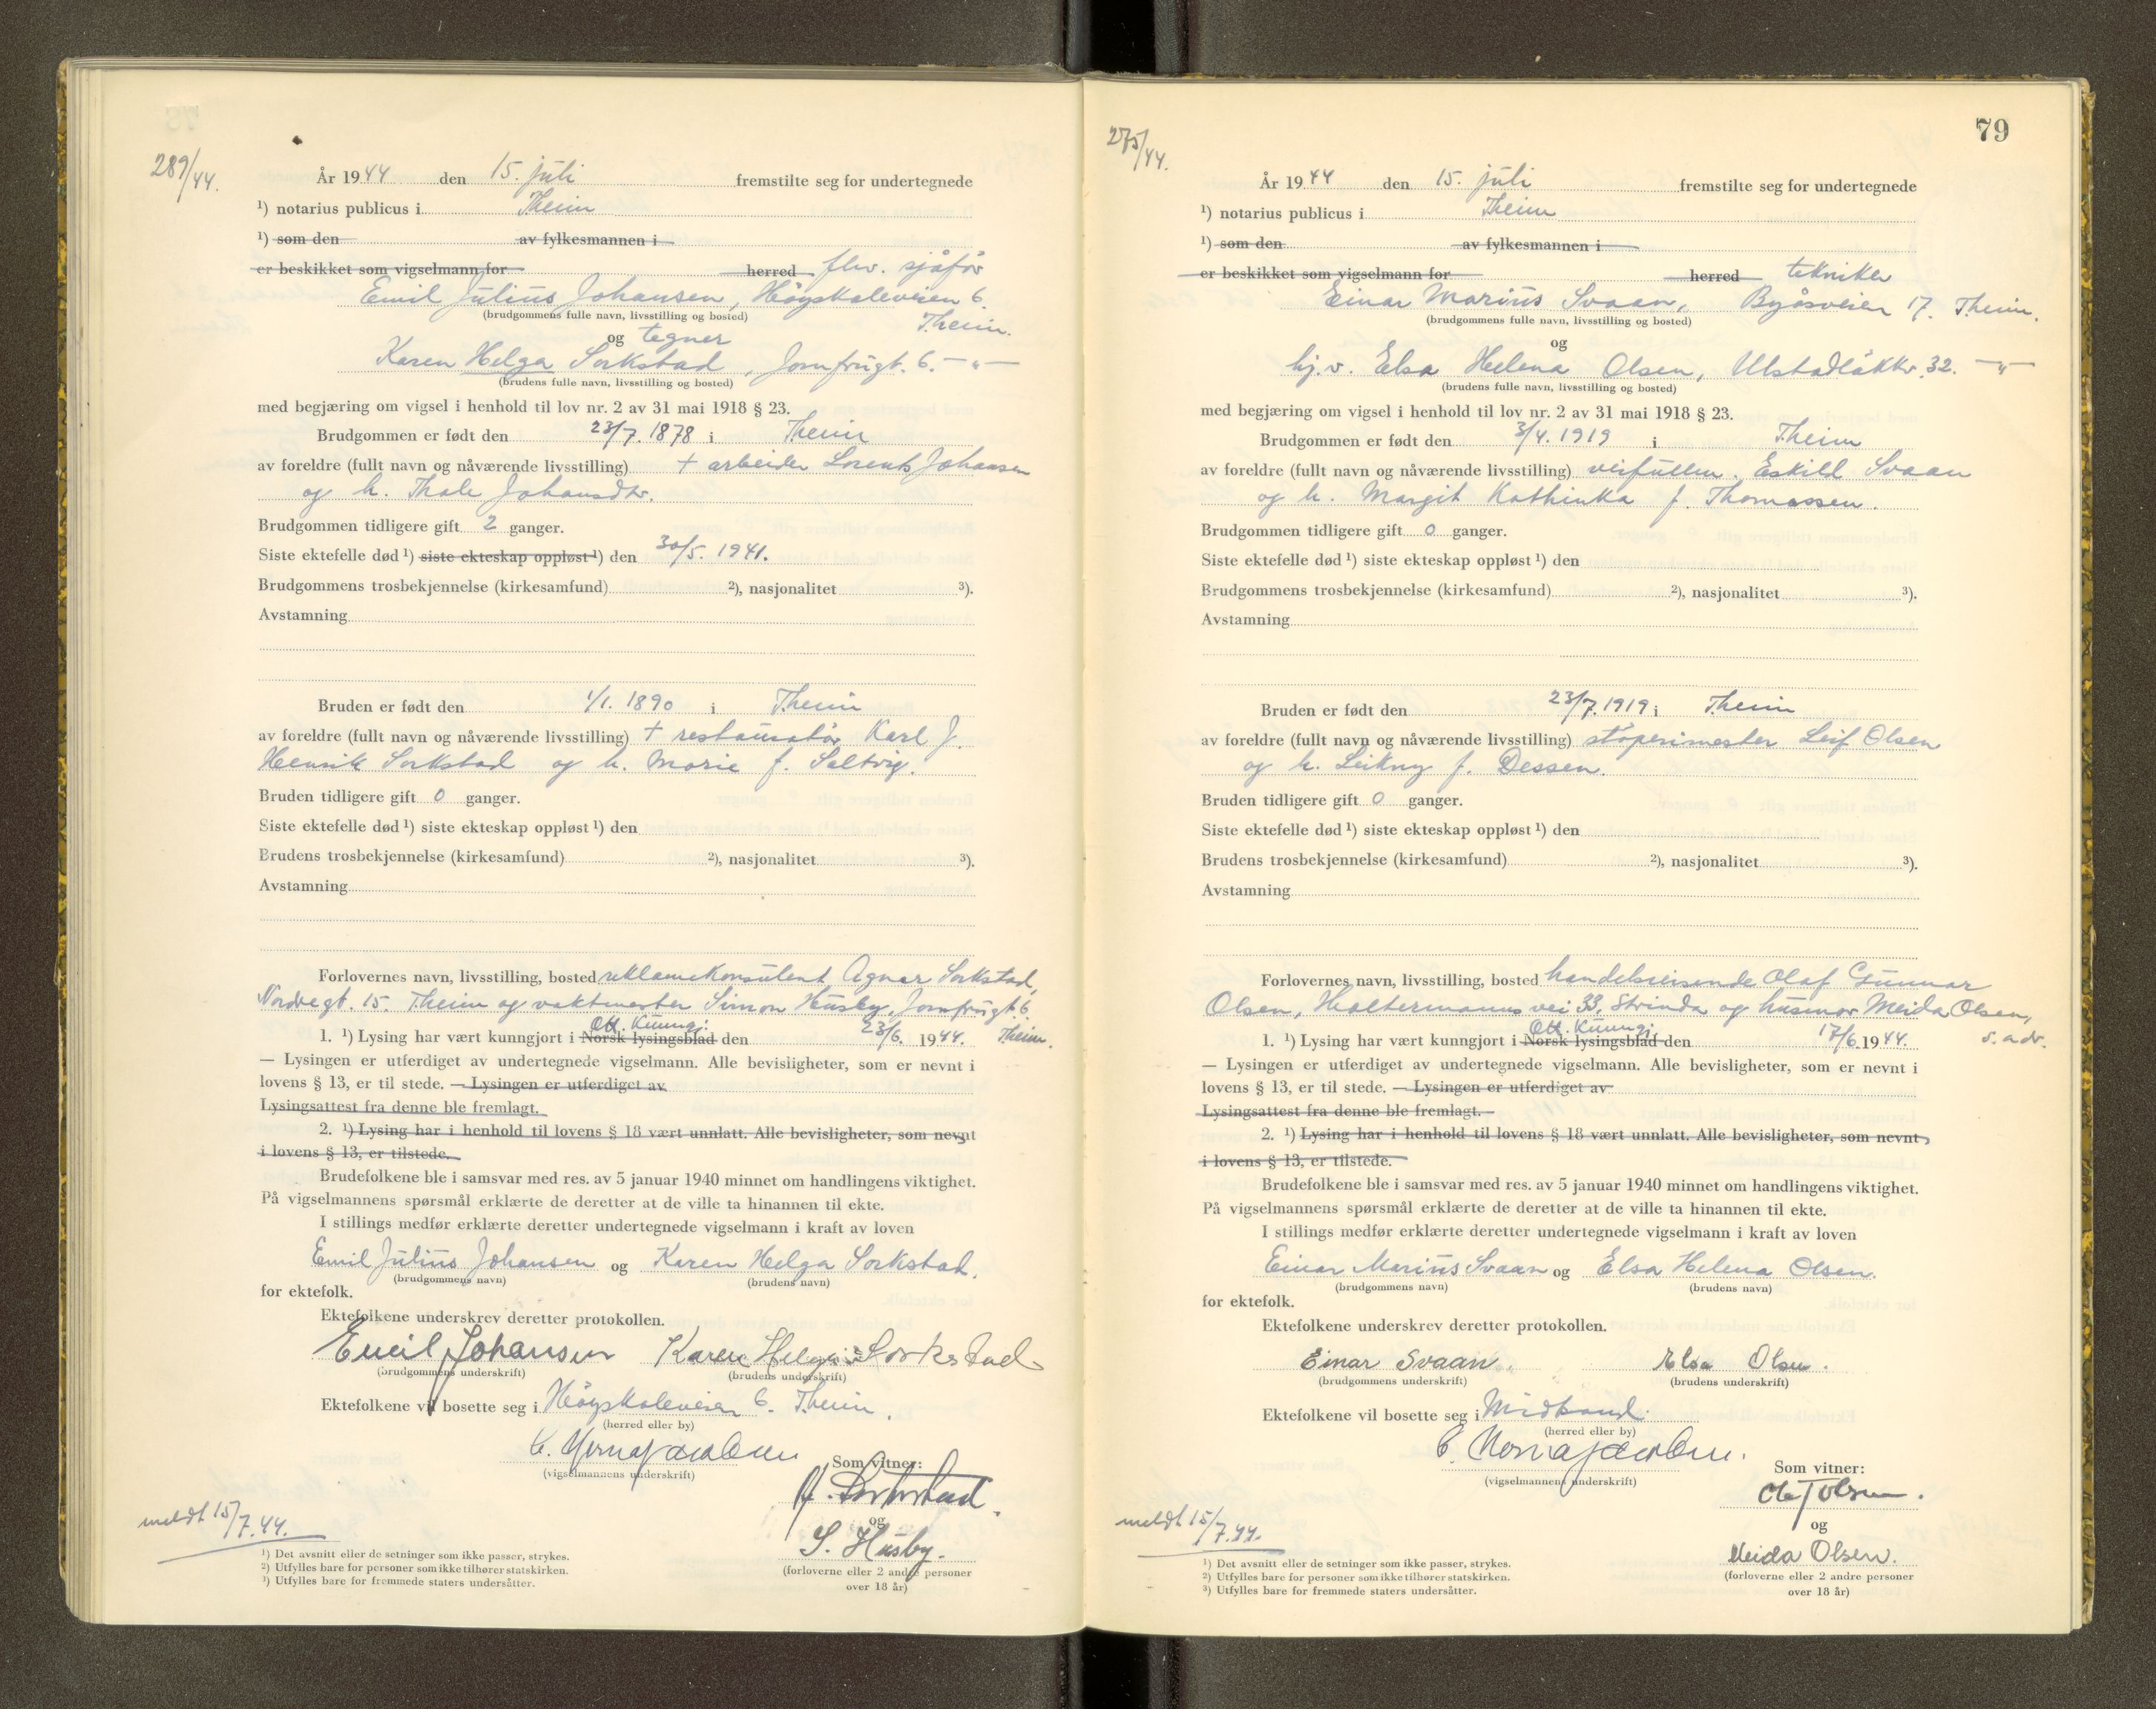 289/44.
År 1944 den 15. juli fremstilte seg for undertegnede
¹) notarius publicus i Theim
¹) som den av fylkesmannen i
er beskikket som vigselmann for herred fhv. sjåfør
Emil Julius Johansen, Høyskoleveien 6.
(brudgommens fulle navn, livsstilling og bosted) Theim.
og tegner
Karen Helga Sorkstad, Jomfrugt. 6. -"-
(brudens fulle navn, livsstilling og bosted)
med begjæring om vigsel i henhold til lov nr. 2 av 31 mai 1918 § 23.
Brudgommen er født den 23/7. 1878 i Theim
av foreldre (fullt navn og nåværende livsstilling) + arbeider Lorents Johansen
og h. Thale Johansdtr.
Brudgommen tidligere gift 2 ganger.
Siste ektefelle død ¹) siste ekteskap oppløst ¹) den 30/5. 1941.
Brudgommens trosbekjennelse (kirkesamfund) ²), nasjonalitet ³).
Avstamning
Bruden er født den 1/1. 1890 i Theim
av foreldre (fullt navn og nåværende livsstilling) + restauratør Karl J.
Henrik Sorkstad og h. Marie f. Saltvig.
Bruden tidligere gift 0 ganger.
Siste ektefelle død ¹) siste ekteskap oppløst ¹) den
Brudens trosbekjennelse (kirkesamfund) ²), nasjonalitet ³).
Avstamning
Forlovernes navn, livsstilling, bosted reklamekonsulent Agnar Sorkstad,
Nordregt. 15. Theim og vaktmester Simon Husby, Jomfrugt. 6.
Off. Kunngj:
1. ¹) Lysing har vært kunngjort i Norsk lysingsblad den 23/6. 1944. Theim.
— Lysingen er utferdiget av undertegnede vigselmann. Alle bevisligheter, som er nevnt i
lovens § 13, er til stede. — Lysingen er utferdiget av
Lysingsattest fra denne ble fremlagt.
2. ¹) Lysing har i henhold til lovens § 18 vært unnlatt. Alle bevisligheter, som nevnt
i lovens § 13, er tilstede.
Brudefolkene ble i samsvar med res. av 5 januar 1940 minnet om handlingens viktighet.
På vigselmannens spørsmål erklærte de deretter at de ville ta hinannen til ekte.
I stillings medfør erklærte deretter undertegnede vigselmann i kraft av loven
Emil Julius Johansen og Karen Helga Sorkstad.
(brudgommens navn) (brudens navn)
for ektefolk.
Ektefolkene underskrev deretter protokollen.
Emil Johansen Karen Helga Sorkstad
(brudgommens underskrift) (brudens underskrift)
Ektefolkene vil bosette seg i Høyskoleveien 6. Theim.
(herred eller by)
(vigselmannens underskrift)
Som vitner:
A. Sorkstad.
og
S. Husby.
(forloverne eller 2 andre personer
over 18 år)
meldt 15/7.44.
¹) Det avsnitt eller de setninger som ikke passer, strykes.
²) Utfylles bare for personer som ikke tilhører statskirken.
³) Utfylles bare for fremmede staters undersåtter.
79
275/44.
År 1944 den 15. juli fremstilte seg for undertegnede
¹) notarius publicus i Theim
¹) som den av fylkesmannen i
er beskikket som vigselmann for herred tekniker
Einar Marius Svaan, Byåsveien 17. Theim.
(brudgommens fulle navn, livsstilling og bosted)
og
hj.v. Elsa Helena Olsen, Ulstadløkkv. 32. -"-
(brudens fulle navn, livsstilling og bosted)
med begjæring om vigsel i henhold til lov nr. 2 av 31 mai 1918 § 23.
Brudgommen er født den 3/4. 1919 i Theim
av foreldre (fullt navn og nåværende livsstilling) veifullm. Eskild Svaan
og h. Margit Kathinka f. Thomassen.
Brudgommen tidligere gift 0 ganger.
Siste ektefelle død ¹) siste ekteskap oppløst ¹) den
Brudgommens trosbekjennelse (kirkesamfund) ²), nasjonalitet ³).
Avstamning
Bruden er født den 23/7. 1919 i Theim
av foreldre (fullt navn og nåværende livsstilling) støperimester Leif Olsen
og h. Leikny f. Dessen.
Bruden tidligere gift 0 ganger.
Siste ektefelle død ¹) siste ekteskap oppløst ¹) den
Brudens trosbekjennelse (kirkesamfund) ²), nasjonalitet ³).
Avstamning
Forlovernes navn, livsstilling, bosted handelsreisende Olaf Gunnar
Olsen, Haltermanns vei 33, Strinda og husmor Meida Olsen,
Off. Kunngj. s. adr.
1. ¹) Lysing har vært kunngjort i Norsk lysingsblad den 17/6. 1944.
— Lysingen er utferdiget av undertegnede vigselmann. Alle bevisligheter, som er nevnt i
lovens § 13, er til stede. — Lysingen er utferdiget av
Lysingsattest fra denne ble fremlagt.
2. ¹) Lysing har i henhold til lovens § 18 vært unnlatt. Alle bevisligheter, som nevnt
i lovens § 13, er tilstede.
Brudefolkene ble i samsvar med res. av 5 januar 1940 minnet om handlingens viktighet.
På vigselmannens spørsmål erklærte de deretter at de ville ta hinannen til ekte.
I stillings medfør erklærte deretter undertegnede vigselmann i kraft av loven
Einar Marius Svaan og Elsa Helena Olsen.
(brudgommens navn) (brudens navn)
for ektefolk.
Ektefolkene underskrev deretter protokollen.
Einar Svaan. Elsa Olsen.
(brudgommens underskrift) (brudens underskrift)
Ektefolkene vil bosette seg i Midtsand.
(herred eller by)
(vigselmannens underskrift)
Som vitner:
Olaf Olsen.
og
Meida Olsen.
(forloverne eller 2 andre personer
over 18 år)
meldt 15/7.44.
¹) Det avsnitt eller de setninger som ikke passer, strykes.
²) Utfylles bare for personer som ikke tilhører statskirken.
³) Utfylles bare for fremmede staters undersåtter.